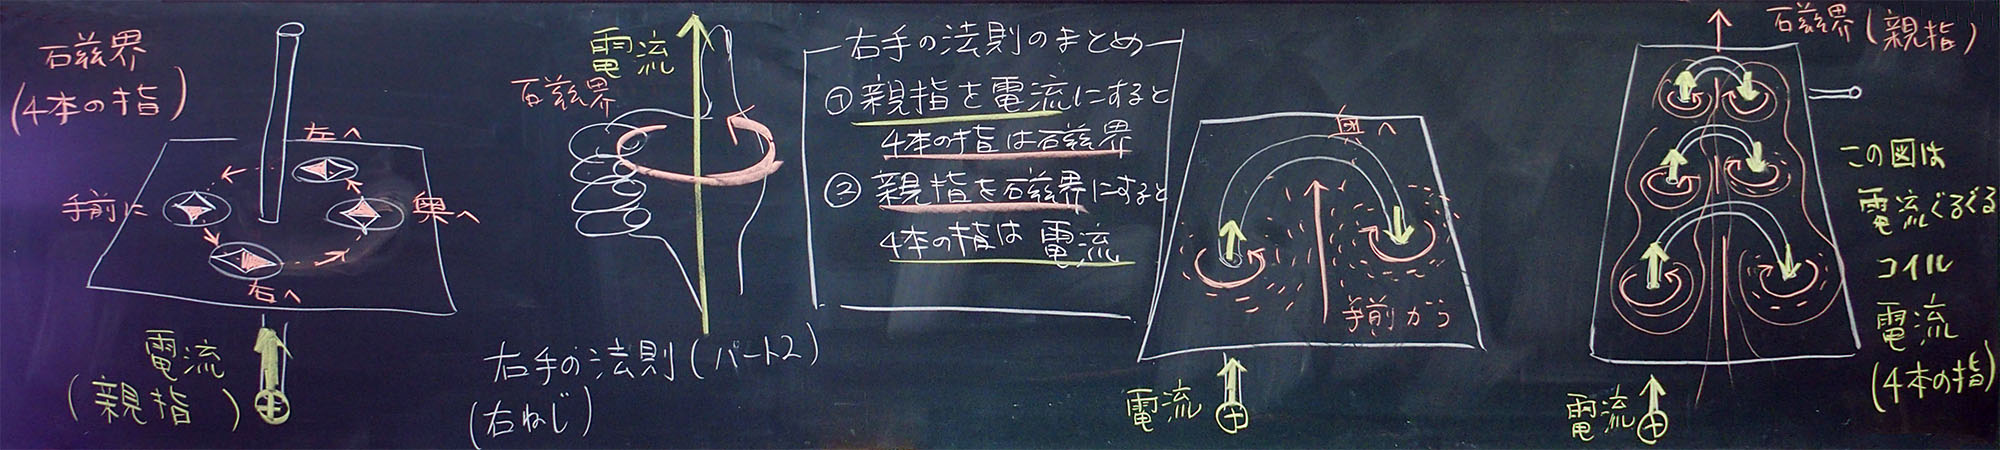 磁界
(4本の指)
左へ
手前に
奥へ
右へ
電流
(親指)
電流
磁界
右手の法則(パート2)
(右ねじ)
右手の法則のまとめ
①親指を電流にすると
4本の指は磁界
②親指を磁界にすると
4本の指は電流
奥へ
手前から
電流
磁界(親指)
この図は
電流ぐるぐる
コイル
電流
(4本の指)
電流